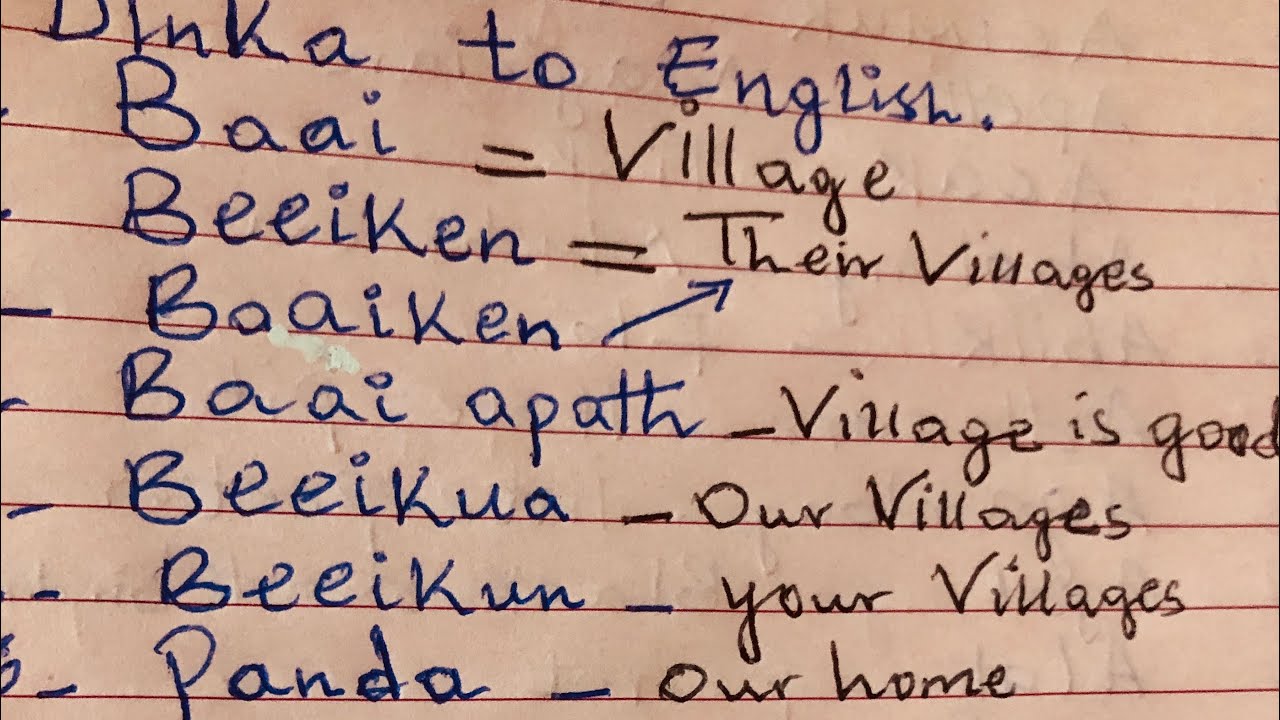 Dinka to English.
Baai = Village
Beeiken = Their Villages
- Baaiken
- Baai apath - Village is good
- Beeikua - Our Villages
- Beeikun - your Villages
- Panda - our home